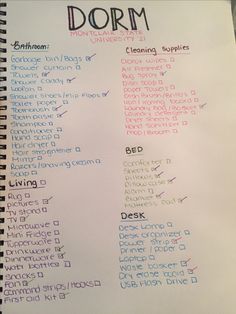 DORM
MONTCLAIR STATE
UNIVERSITY '21
Bathroom:
Garbage bin/Bags
Shower curtain
Towels
Shower caddy
Loofah
Shower shoes/flip flops
Toilet paper
Tooth paste
Shampoo
Conditioner
Hand soap
Hair dryer
Hair straightener
Mirror
Razors/shaving cream
Soap
Living
Rug
pictures
TV stand
TV
Microwave
Mini Fridge
Tupperware
Drinkware
Dinnerware
water bottles
Snacks
Fan
Command strips/Hooks
First aid kit
Cleaning Supplies
Clorox wipes
Air Freshner
Bug Spray
Dish soap
Paper Towels
Dish Brush/
Iron/Ironing board
Laundry bag/Basket
Laundry detergent
Dryer sheets
Hand sanitizer
Mop/Broom
BED
Comforter
Sheets
Pillows
Pillow case
Blanket
Mattress pad
DESK
Desk lamp
Desk organizer
Power strip
Printer/paper
Laptop
Waste basket
Dry erase board
USB Flash Drive